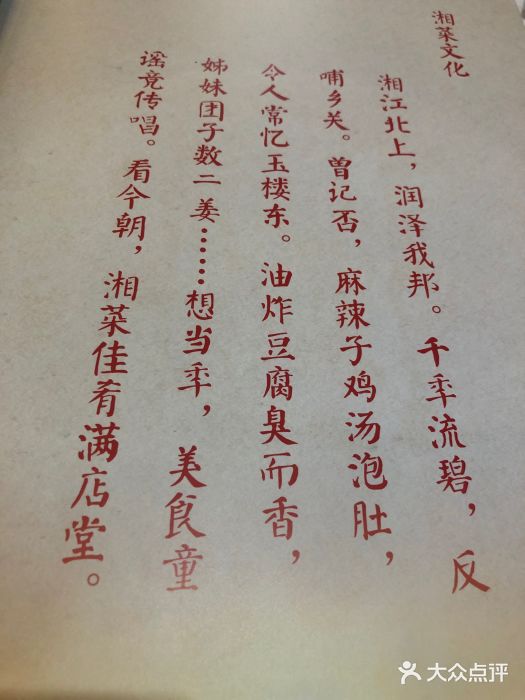 湘菜文化
湘江北上，润泽我邦。千年流碧，反
哺乡关。曾记否，麻辣子鸡汤泡肚，
令人常忆玉楼东。油炸豆腐臭而香，
姊妹团子数二姜……想当年，美食童
谣竞传唱。看今朝，湘菜佳肴满店堂。
大众点评